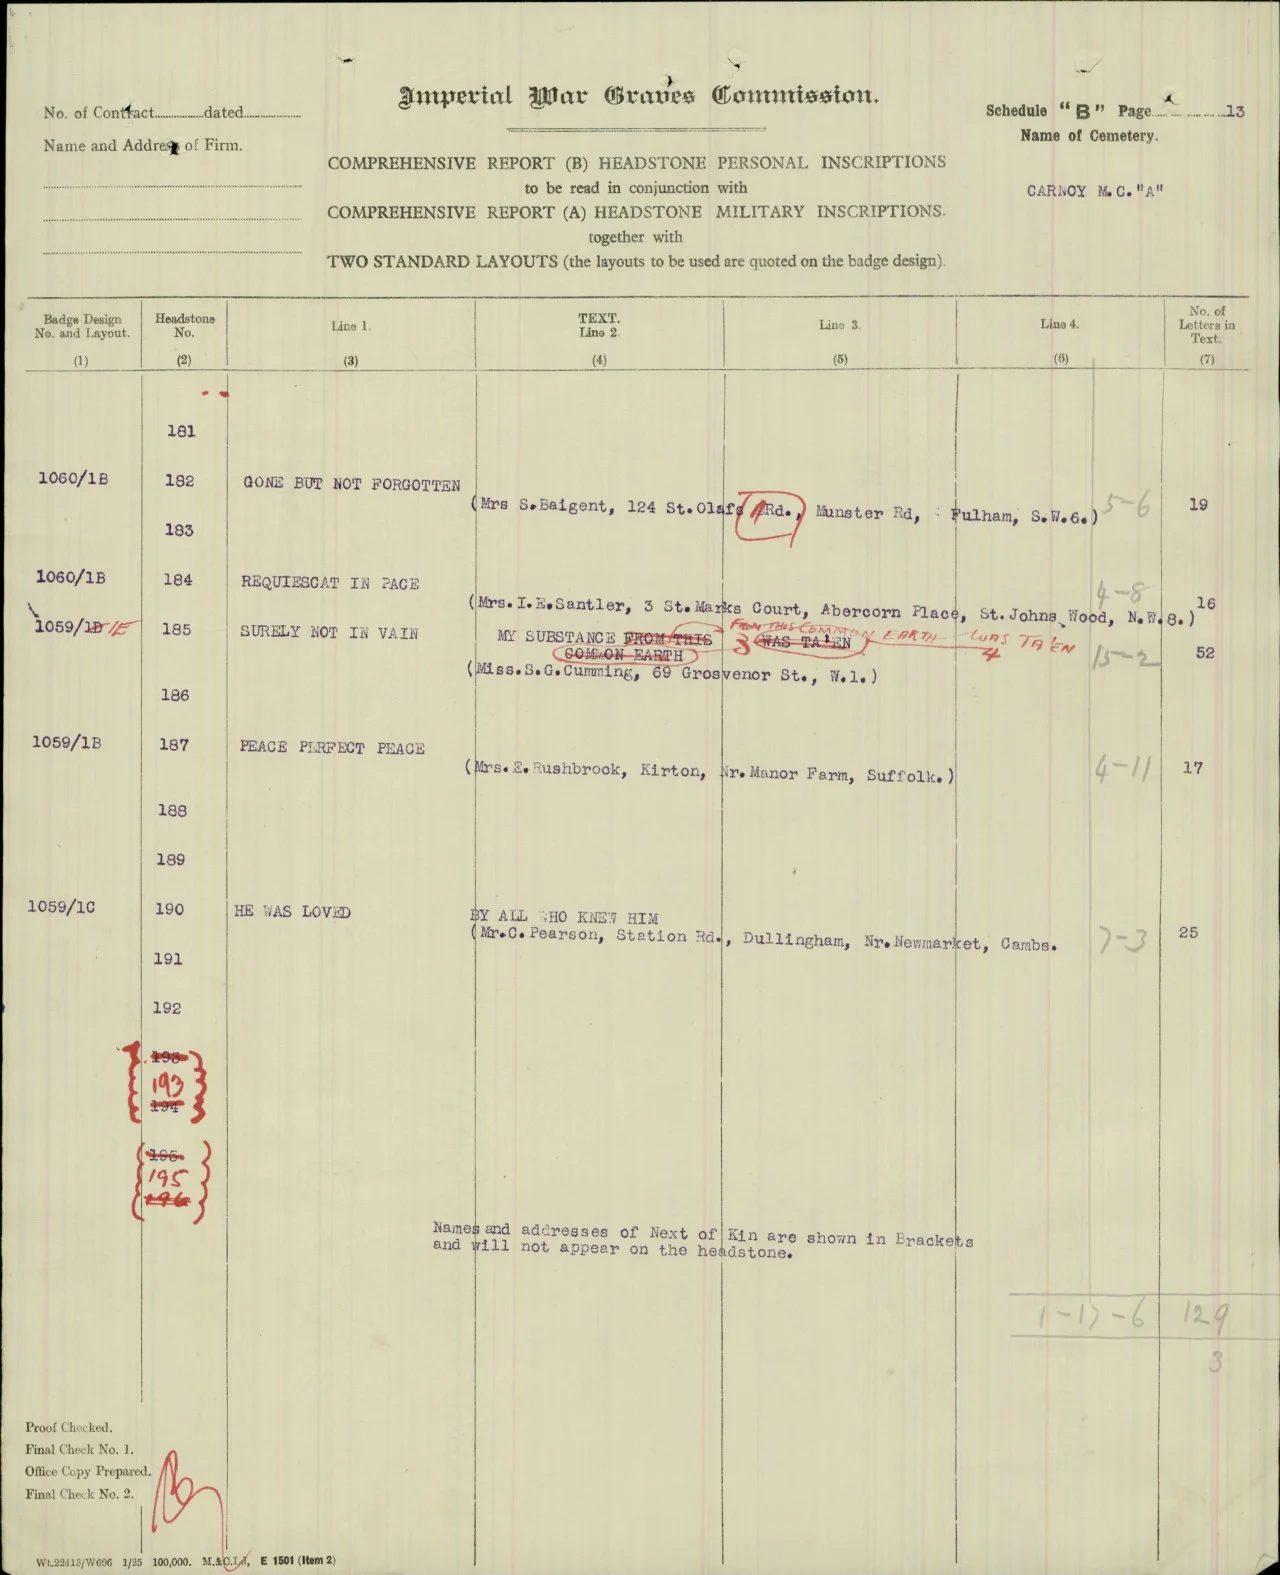 Imperial War Graves Commission.
No. of Contract..................dated..................
Schedule "B" Page..................13
Name and Address of Firm.
Name of Cemetery.
CARNOY M.C."A"
COMPREHENSIVE REPORT (B) HEADSTONE PERSONAL INSCRIPTIONS
to be read in conjunction with
COMPREHENSIVE REPORT (A) HEADSTONE MILITARY INSCRIPTIONS.
together with
TWO STANDARD LAYOUTS (the layouts to be used are quoted on the badge design).
Badge Design No. and Layout. (1) Headstone No. (2) Line 1. (3) TEXT. Line 2. (4) Line 3. (5) Line 4. (6) No. of Letters in Text. (7)
181
1060/1B 182 GONE BUT NOT FORGOTTEN
(Mrs S.Baigent, 124 St.Olafs Rd., Munster Rd, Fulham, S.W.6.) 5-6 19
183
1060/1B 184 REQUIESCAT IN PACE 4-8
(Mrs.I.E.Santler, 3 St.Marks Court, Abercorn Place, St.Johns Wood, N.W.8.) 16
FROM THIS COMMON EARTH WAS TA'EN
1059/1D 1E 185 SURELY NOT IN VAIN MY SUBSTANCE FROM THIS 3 WAS TA'EN 4
COMMON EARTH 15-2 52
(Miss.S.G.Cumming, 69 Grosvenor St., W.1.)
186
1059/1B 187 PEACE PERFECT PEACE
(Mrs.E.Rushbrook, Kirton, Nr.Manor Farm, Suffolk.) 4-11 17
188
189
1059/1C 190 HE WAS LOVED BY ALL WHO KNEW HIM
(Mr.C.Pearson, Station Rd., Dullingham, Nr.Newmarket, Cambs. 7-3 25
191
192
193
193
194
195
195
196
Names and addresses of Next of Kin are shown in Brackets
and will not appear on the headstone.
1-17-6 129
3
Proof Checked.
Final Check No. 1.
Office Copy Prepared.
Final Check No. 2.
Wt.22413/W696 1/25 100,000. M.&C.Ld, E 1501 (Item 2)